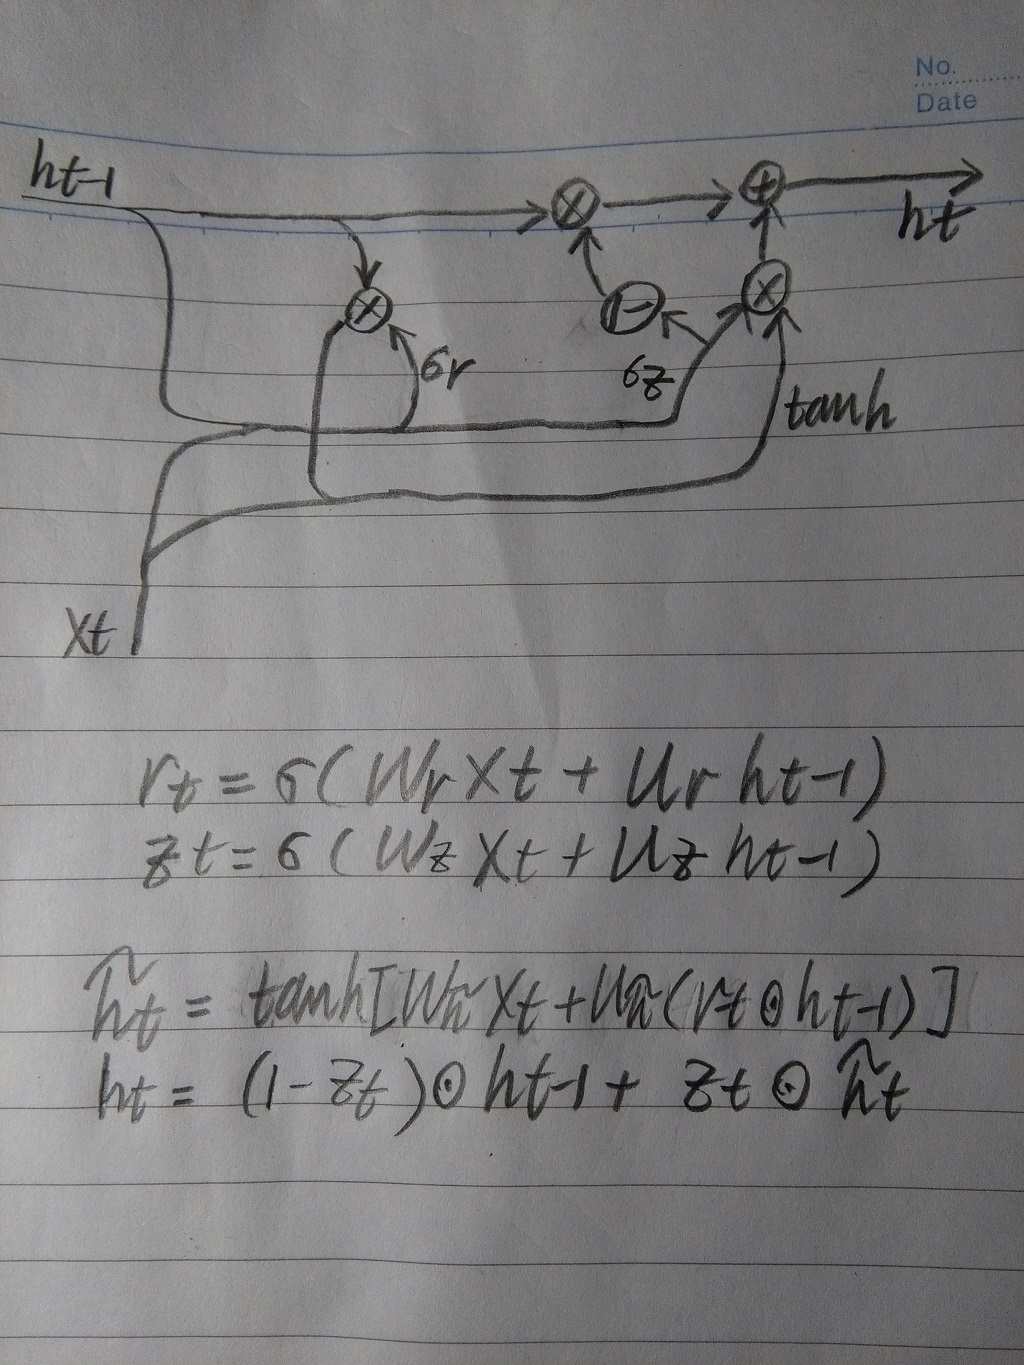 No.
Date
ht-1
ht
σr
σz
tanh
xt
rt = σ(Wr xt + Ur ht-1)
zt = σ(Wz xt + Uz ht-1)
h̃t = tanh[Wh̃ xt + Uh̃(rt⊙ht-1)]
ht = (1-zt)⊙ht-1 + zt⊙h̃t